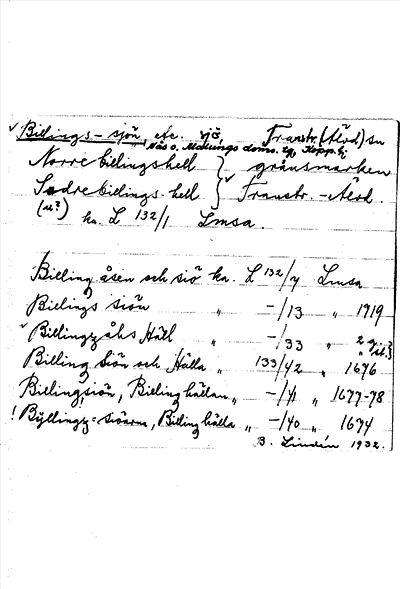 ✓ Billings-sjön, etc. sjö, Transtr. (Älvd) sn
Näs o. Malungs doms. tg, Kopp. lj
Norre billingshell } gränsmärken
Sødre billings-hell } ✓ Transtr. - Älvd.
(u?) ka. L 132/1 Lmsa.
Billing åsen och siö ka. L 132/7 Lmsa
Billings siön " -/13 " 1719
✓ Billingz åhs Häll " -/33 "
Billing Siön och Hälla " 133/42 " 1676
Billingsiön, Billinghällan " -/41 " 1677-78
! Byllingz-siöarne, Billinghälla " -/40 " 1694
B. Lindén 1932.